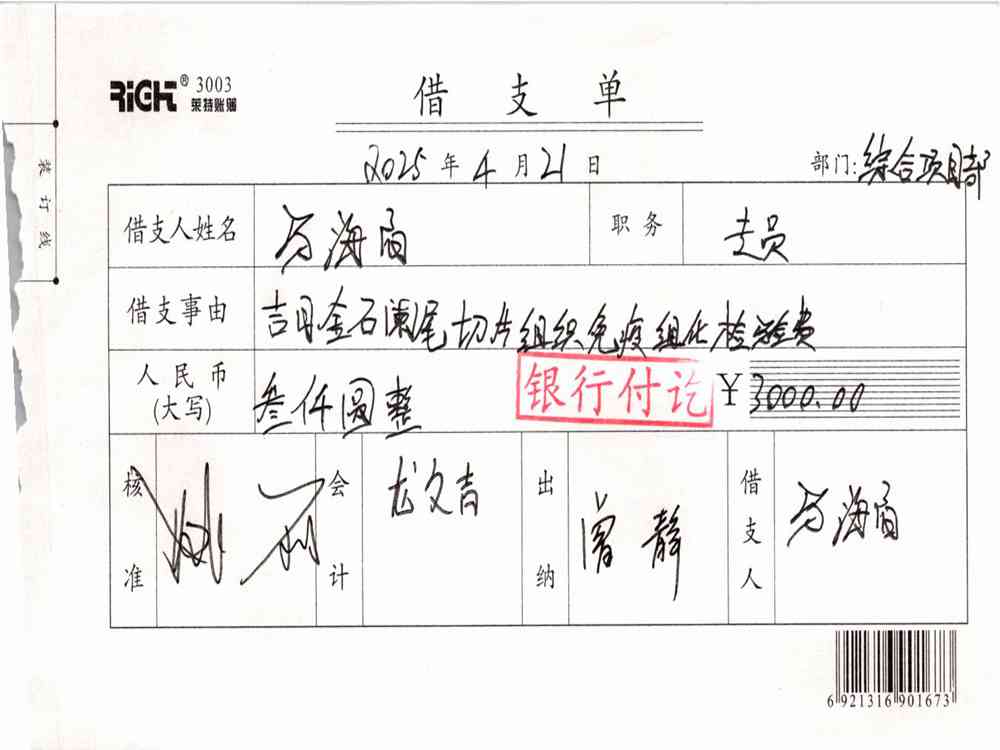 RiGHT® 3003
莱特账簿
借支单
2025年4月21日
部门:综合项目部
装订线
借支人姓名 马海
职务 专员
借支事由 吉 金石阑尾切片组织免疫组化检验费
人民币(大写) 叁仟圆整
银行付讫
¥3000.00
核准
会计 尤文吉
出纳 曾静
借支人 马海
6 921316 901673